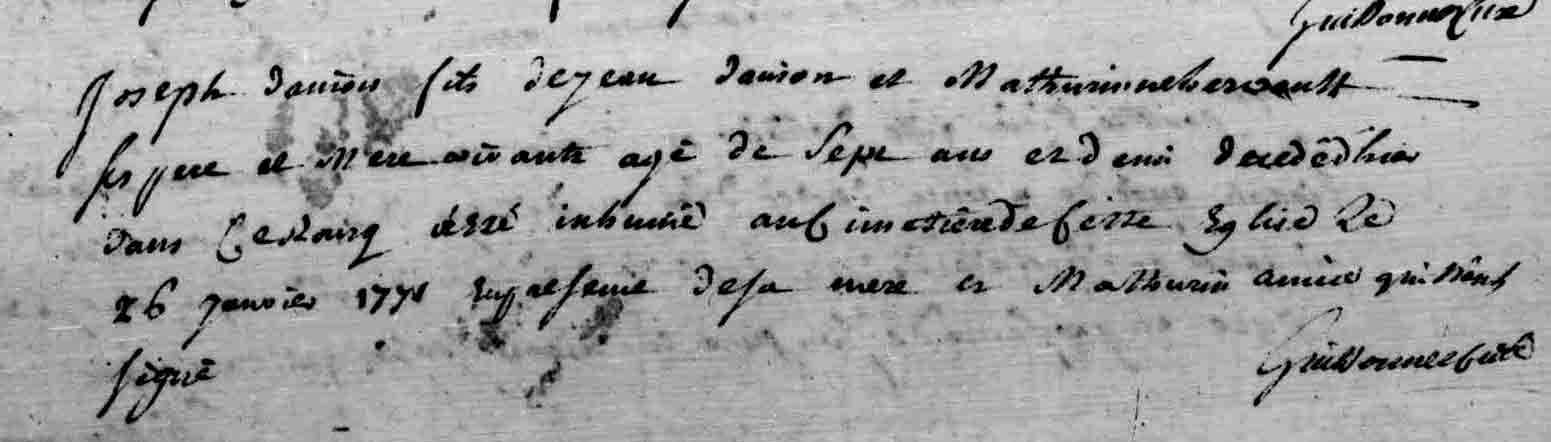 Joseph danion fils de jean danion et Mathurinne herveault
ses pere et Mere vivants agé de Sept ans et demi decedé hier
dans Ce bourg a été inhumé au Cimetiere de Cette Eglise Le
26 janvier en presence de sa mere et Mathurin qui n'ont
signé